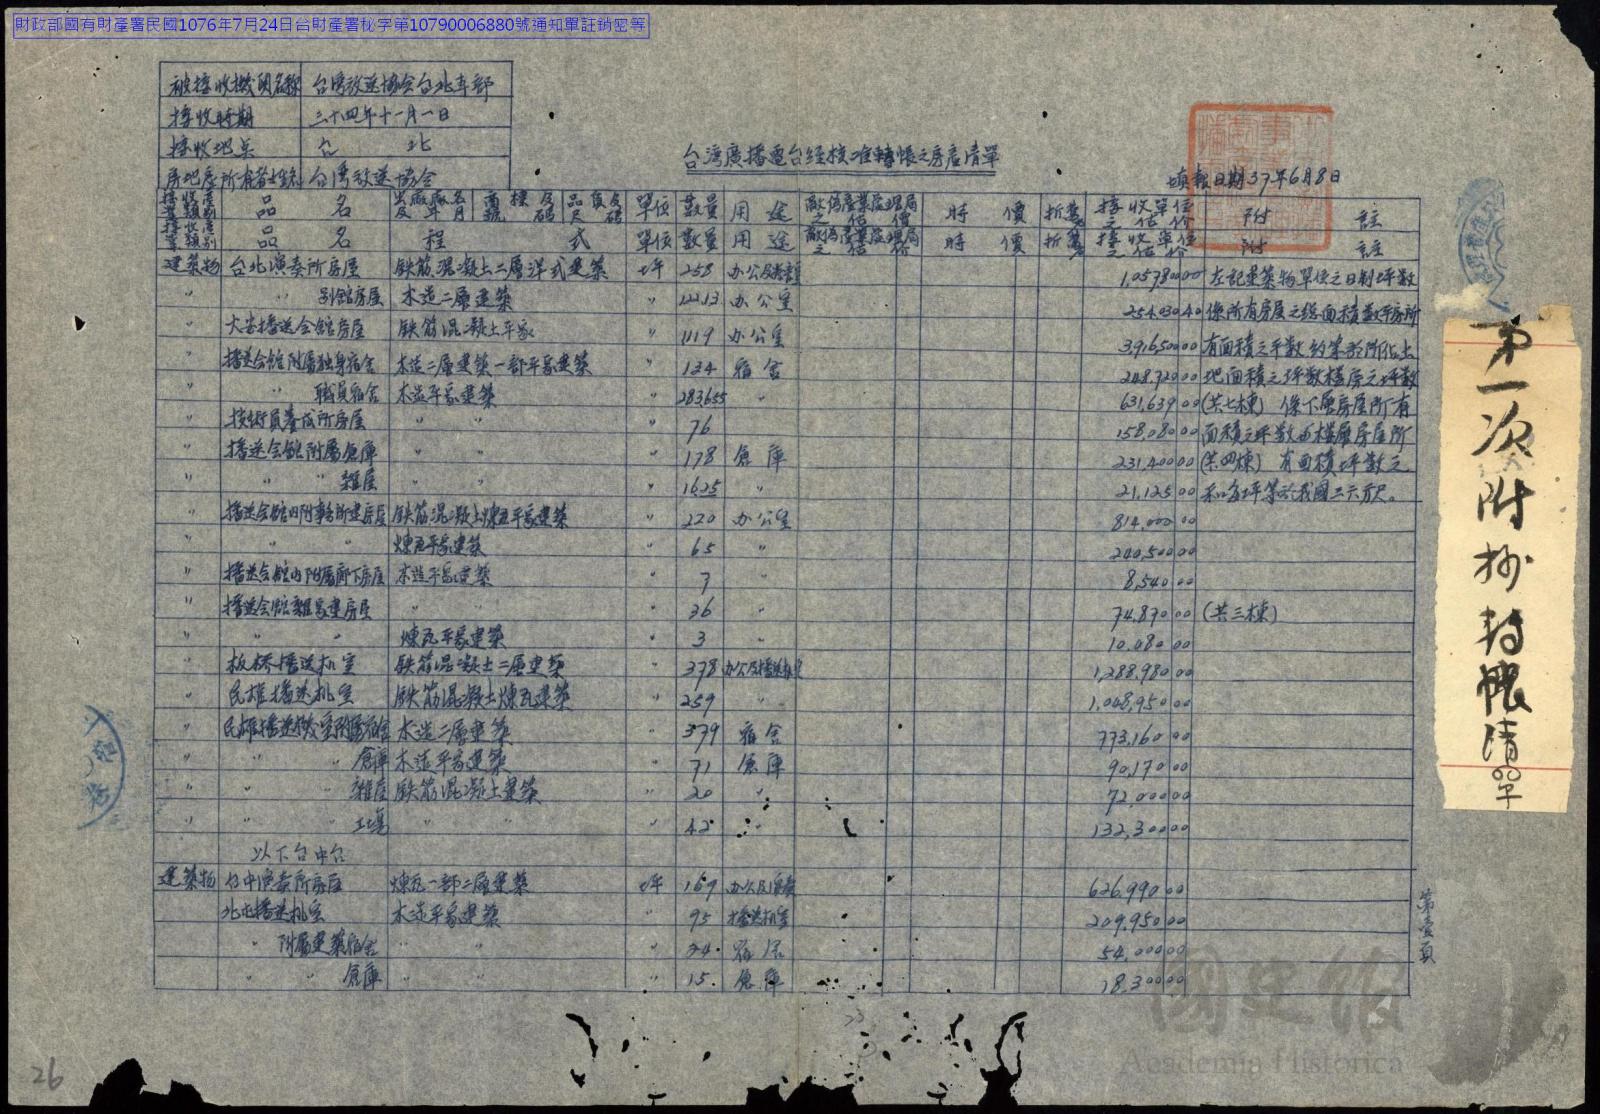 財政部國有財產署民國1076年7月24日台財產署秘字第10790006880號通知單註銷密等
被接收機關名稱 台灣放送協会台北支部
接收時期 三十四年十一月一日
接收地点 台北
房地產所有者姓名 台灣放送協会
台灣廣播電台経核准轉帳之房產清單
填報日期37年6月8日
接收產業類別 品名 出廠廠名及年月 商標及號碼 品質及尺碼 單位 數量 用途 敵偽產業處理局之估價 時價 折舊 接收單位之估价 附註
接收產業類別 品名 程式 單位 數量 用途 敵偽產業處理局之估價 時價 折舊 接收單位之估价 附註
建築物 台北演奏所房屋 鉄筋混凝土二層洋式建築 坪 258 办公及 1,057,800 00 左記建築物單位之日制坪數
〃 〃 別館房屋 木造二層建築 〃 122.13 办公室 254,030 40 係所有房屋之總面積數坪房所
〃 大安播送会館房屋 鉄筋混凝土平家 〃 1119 办公室 3,916,500 00 有面積之平數約業部所佔土
〃 播送会館附屬独身宿舍 木造二層建築一部平家建築 〃 134 宿舍 248,720 00 地面積之坪數樓房之坪數
〃 〃 職員宿舍 木造平家建築 〃 283655 〃 631,639 00 (共七棟) 係下層房屋所有
〃 技術員養成所房屋 〃 〃 〃 76 158,080 00 面積之坪數与樓層房屋所
〃 播送会館附屬倉庫 〃 〃 〃 178 倉庫 231,400 00 (共四棟) 有面積坪數之
〃 〃 〃 雜屋 〃 〃 〃 1625 〃 21,125 00 和每坪等於我國三六方尺。
〃 播送会館内附事務所建房屋 鉄筋混凝土煉瓦平家建築 〃 220 办公室 814,000 00
〃 〃 〃 煉瓦平家建築 〃 65 〃 240,500 00
〃 播送会館内附屬廊下房屋 木造平家建築 〃 7 〃 8,540 00
〃 播送会館雜家建房屋 〃 〃 〃 36 〃 74,870 00 (共三棟)
〃 〃 〃 煉瓦平家建築 〃 3 〃 10,080 00
〃 板桥播送机室 鉄筋混凝土二層建築 〃 378 办公及播送机室 1,288,980 00
〃 民雄播送机室 鉄筋混凝土煉瓦建築 〃 259 〃 1,048,950 00
〃 民雄播送機室附屬宿舍 木造二層建築 〃 379 宿舍 773,160 00
〃 〃 〃 倉庫 木造平家建築 〃 71 倉庫 90,170 00
〃 〃 〃 雜屋 鉄筋混凝土建築 〃 20 〃 72,000 00
〃 〃 〃 工場 〃 〃 〃 42 〃 132,300 00
以下台中台
建築物 台中演奏所房屋 煉瓦一部二層建築 坪 169 办公及演奏 626,990 00
〃 北屯播送机室 木造平家建築 〃 95 播送机室 209,950 00
〃 〃 附屬建築宿舍 〃 〃 〃 24 宿居 54,000 00
〃 〃 〃 倉庫 〃 〃 〃 15 倉庫 18,300 00
第一次附抄轉帳清單
第壹頁
國史館
Academia Historica
26